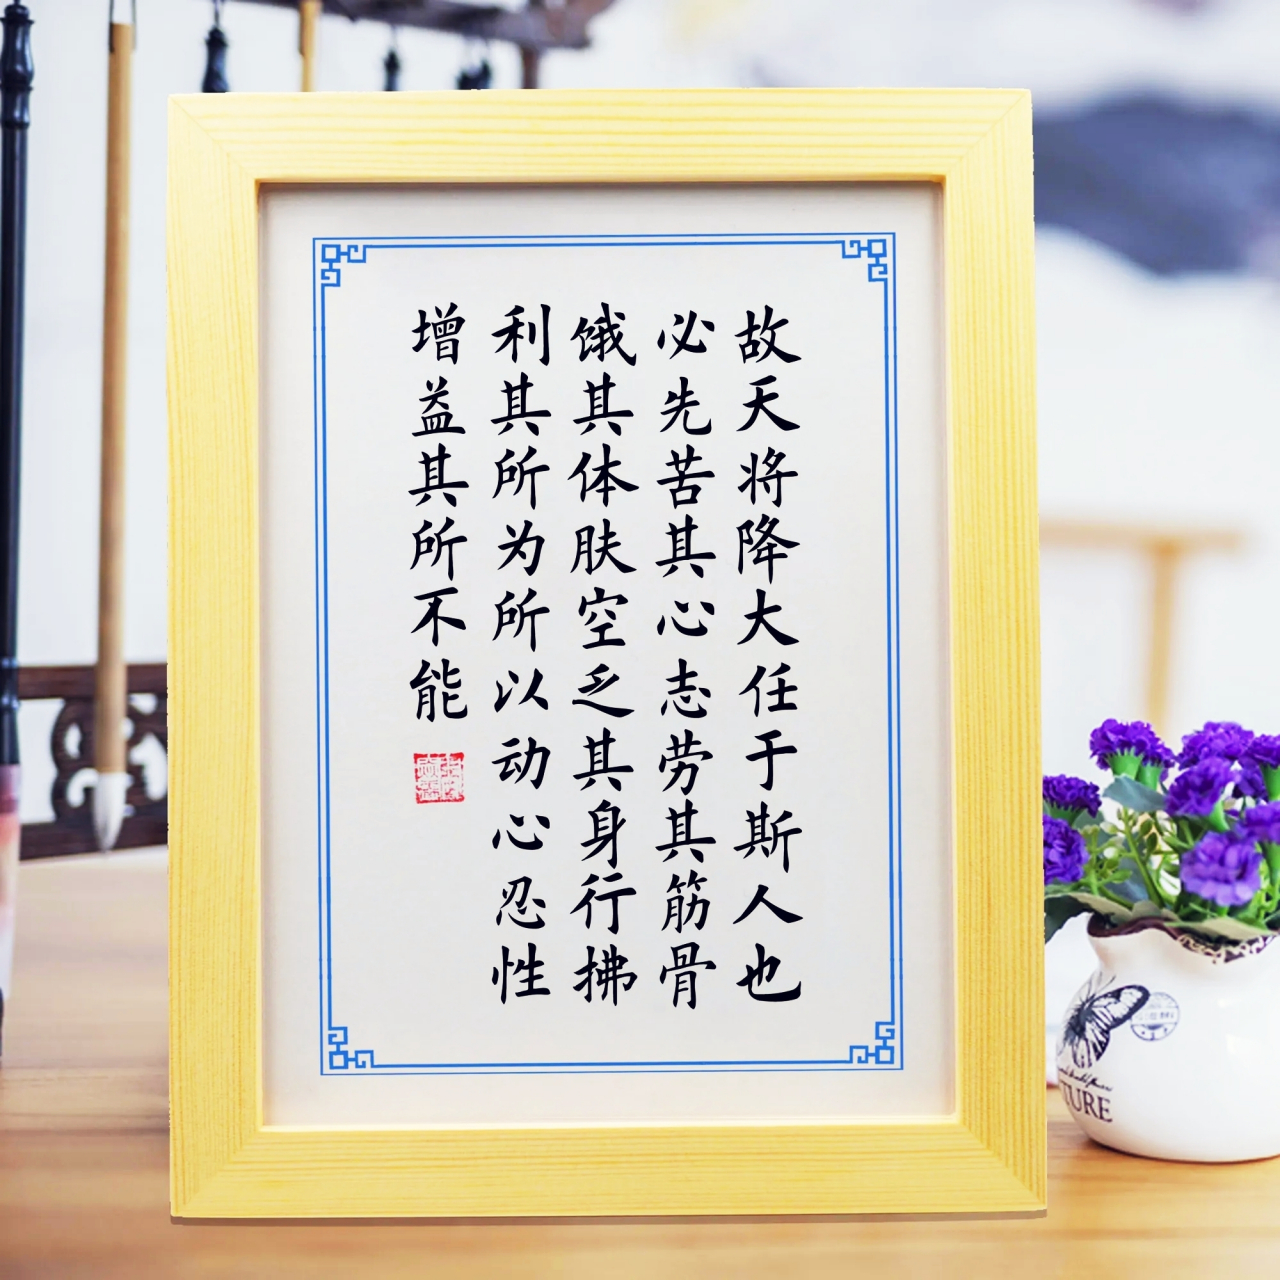 故天将降大任于斯人也
必先苦其心志劳其筋骨
饿其体肤空乏其身行拂
利其所为所以动心忍性
增益其所不能
TURE